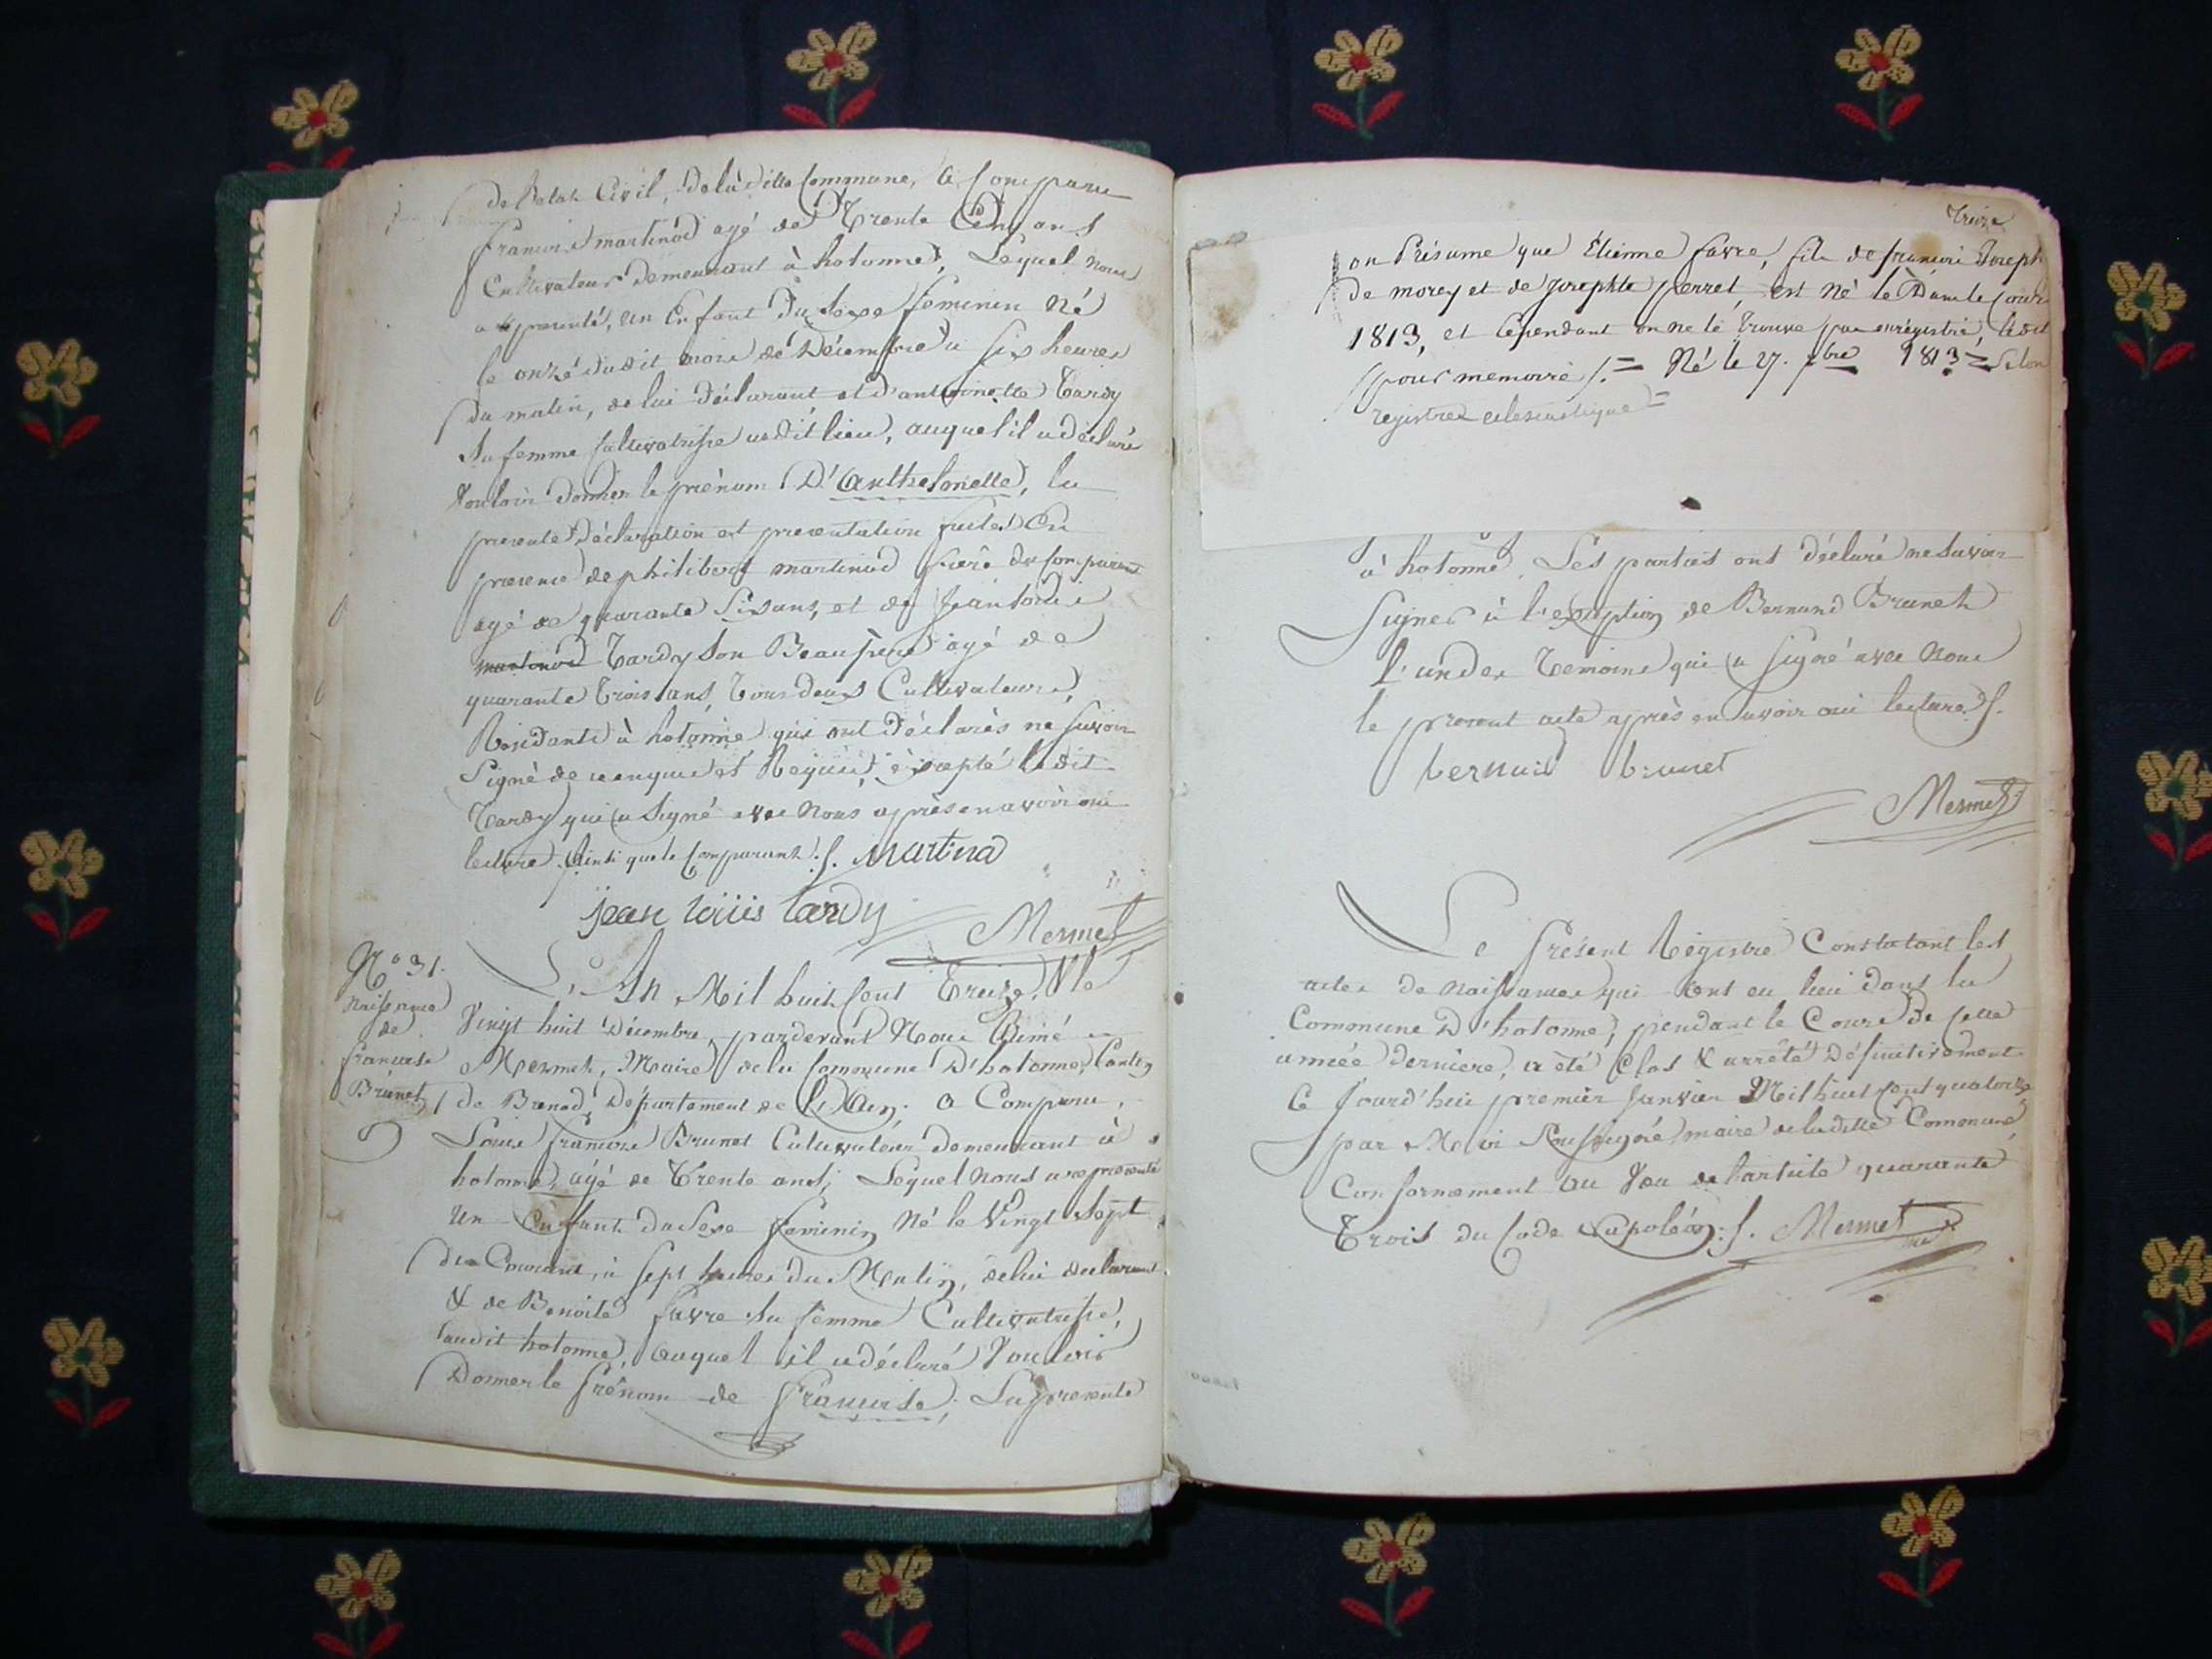 de l'etat Civil, de la ditte Commune, a Comparu
francois martinod agé de Trente Cinq ans
Cultivateur demeurant à hotonne, Lequel nous
a presenté, un Enfant du sexe feminin Né
le onze dudit mois de Décembre a six heures
du matin, de lui déclarant et d'antoinette Tardy
sa femme Cultivatrisse audit lieu, auquel il a déclaré
vouloir donner le prénom D'Anthelmette, la
presente Déclaration et presentation faites En
presence de philibert martinod frère du Comparant
agé de quarante six ans, et de
martinod Tardy son Beaufrere agé de
quarante Trois ans, Tous deux Cultivateurs,
Residants à hotonne qui ont déclarés ne savoir
Signé de ce enquis et Requis, éxcepté ledit
Tardy qui a signé avec Nous après en avoir oui
lecture. Ainsi que le Comparant ./. Martina
jean loüis tardy
Mermet
N° 31.
Naissance
de
francoise
Brunet
L'An Mil huit Cent Treize, & le
Vingt huit Décembre, pardevant Nous Aimé
Mermet, Maire de la Commune D'hotonne, Canton
de Brenod, Département de l'Ain. a Comparu,
Louis francois Brunet Cultivateur demeurant à
hotonne, agé de Trente ans, Lequel Nous a representé
Un Enfant du Sexe feminin Né le Vingt sept
du Courant, à sept heures du Matin, de lui declarant
& de Benoite favre sa femme Cultivatrisse,
audit hotonne, auquel il a déclaré Vouloir
Donner le prénom de francoise; La presente
Treize
on Présume que Étienne favre, fils de francois Joseph
de morey et de Josephte perret, est Né le Dans le Cours
1813, et Cependant on ne le Trouve pas enrégistré, ledit
pour memoire ./. = Né le 27. 1813 = Selon
registres eclesiastique =
à hotonne. Les parties ont déclaré ne savoir
Signer à l'exception de Bernard Brunet
l'un des Temoins qui a signé avec Nous
le present acte après en avoir oui lecture ./.
bernard brunet
Mermet
Le présent Régistre Constatant les
actes de Naissances qui sont eu lieu dans la
Commune D'hotonne, pendant le Cours de Cette
année dernière, a été Clos & arrêté Définitivement
Ce Jourd'hui premier Janvier Mil huit cent quatorze
par Moi Soussigné maire de la ditte Commune
Conformement au Vœu de l'article quarante
Trois du Code Napoléon ./. Mermet